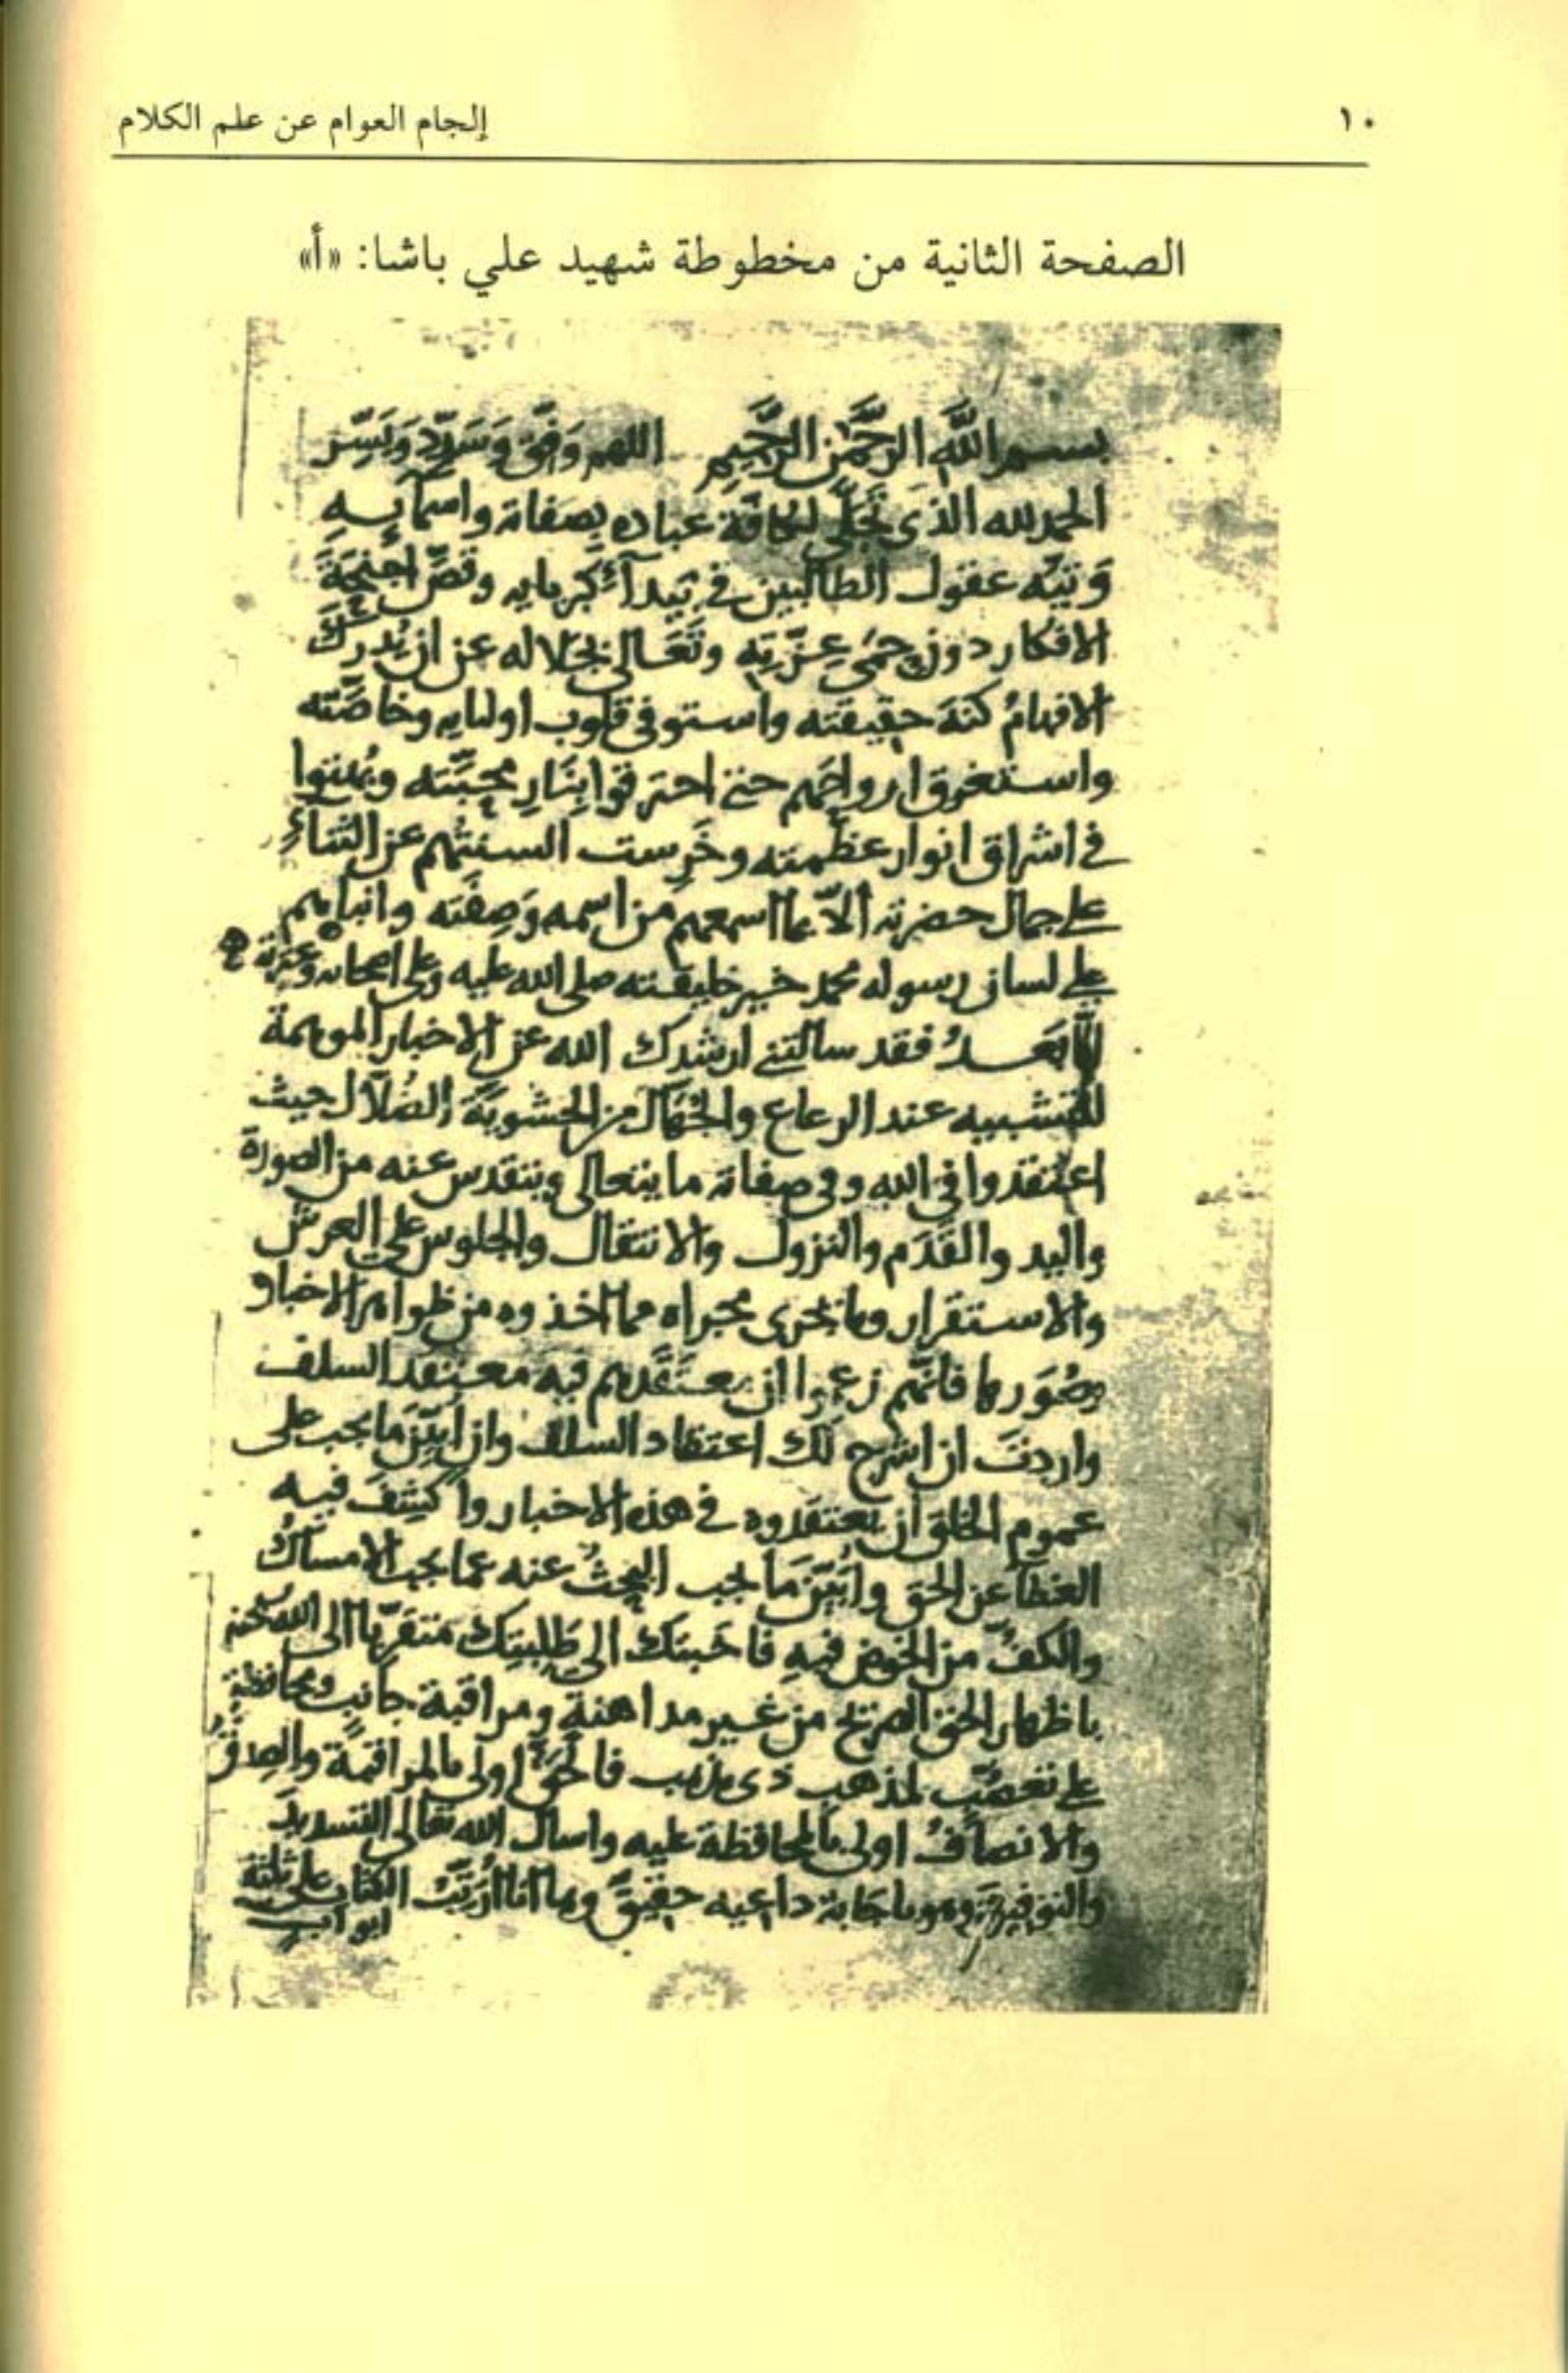 ١٠
إلجام العوام عن علم الكلام
الصفحة الثانية من مخطوطة شهيد علي باشا: «أ»
بسم الله الرَّحْمٰن الرَّحِيم اللهم وَفِّق وَسَدِّد وَيَسِّر
الحمد لله الذى تَجَلَّى لكافة عباده بصفاته واسمآيِهِ
وَتيَّه عقول الطالبين فى بَيدآءِ كبريايه وقصَّ اجنِحَةَ
الافكار دون حِمَى عِزَّتِه وتَعَالى بجلاله عن ان تُدرِكَ
الافهامُ كنهَ حقيقته واستوفى قلوب اوليايه وخاصَّته
واستغرق ارواحَهم حتى احترقوا بِنَارِ محبَّته وبُهِتوا
فى اشراق انوار عظمته وخَرِست السنتُهم عن الثناءِ
على جمال حضرته الّا بما اسمعهم من اسمه وَصِفَته وانباهم
على لسان رسوله محمد خير خليقته صلى الله عليه وعلى اصحابه وعترته
امّا بَعــدُ فقد سالتنى ارشدك الله عن الاخبار الموهمة
للتشبيه عند الرعاع والجُهَّال من الحشويَّة الضُلّال حيث
اعتقدوا فى الله وفى صفاته ما يتعالى ويتقدس عنه من الصورة
واليد والقَدَم والنزول والانتقال والجلوس على العرش
والاستقرار وما يجرى مجراه مما اخذوه من ظواهر الاخبار
وصُوَرها فانَّهم زعموا ان معتَقَدهم فيه معتقد السلف
واردتَ ان اشرح لك اعتقاد السلف وان ابيِّنَ ما يجب على
عموم الخلق ان يعتقدوه فى هذه الاخبار واكشِفَ فيه
الغطا عن الحق واُبَيِّنَ مَا يجب البحثُ عنه عما يجب الامساكُ
والكفُّ من الخوض فيهِ فاجبتك الى طَلِبتِك متقرِّبًا الى الله
باظهار الحق الصريح من غير مداهنةٍ ومراقبة جانب ومحافظةٍ
على تعصّبٍ لمذهب ذى مذهب فالحقُّ اولى بالمراقبة والصِدقُ
والانصافُ اولى بالمحافظة عليه واسال الله تعالى التسديدَ
والتوفيق وهو باجابة داعيه حقيقٌ وها انا اُرَتِّبُ الكتاب على ثلثة
ابواب